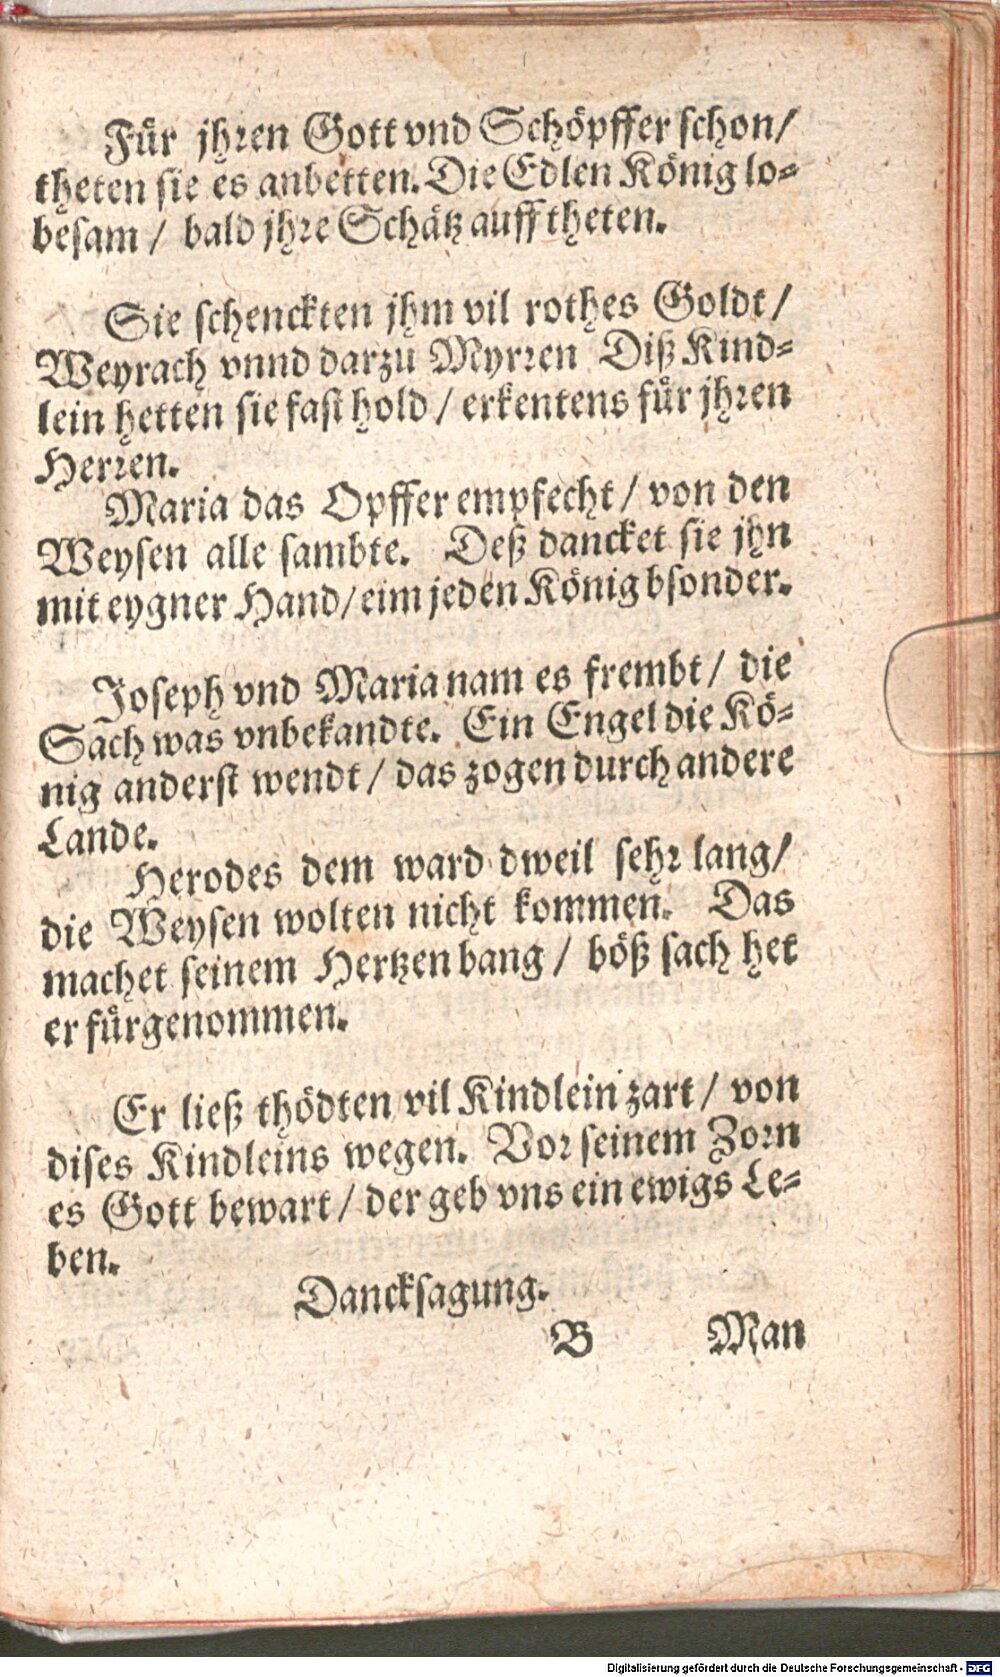 Für jhren Gott vnd Schöpffer schon/
theten sie es anbetten. Die Edlen König lo-
besam / bald jhre Schätz auff theten.
Sie schenckten jhm vil rothes Goldt /
Weyrach vnnd darzu Myrren Diß Kind-
lein hetten sie fast hold / erkentens für jhren
Herren.
Maria das Opffer empfecht / von den
Weysen alle sambte. Deß dancket sie jhn
mit eygner Hand/ eim jeden König bsonder.
Joseph vnd Maria nam es frembt / die
Sach was vnbekandte. Ein Engel die Kö-
nig anderst wendt / das zogen durch andere
Lande.
Herodes dem ward dweil sehr lang/
die Weysen wolten nicht kommen. Das
machet seinem Hertzen bang / böß sach het
er fürgenommen.
Er ließ thödten vil Kindlein zart / von
dises Kindleins wegen. Vor seinem Zorn
es Gott bewart / der geb vns ein ewigs Le-
ben.
Dancksagung.
B Man
Digitalisierung gefördert durch die Deutsche Forschungsgemeinschaft - DFG